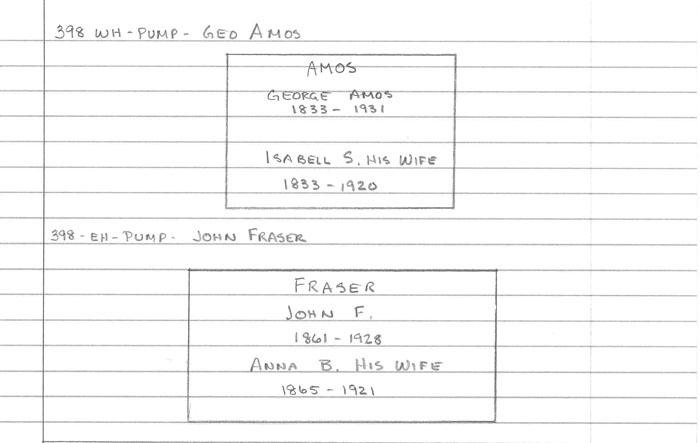 398 WH-PUMP- GEO AMOS
AMOS
GEORGE AMOS
1833- 1931
ISABELL S. HIS WIFE
1833-1920
398-EH-PUMP- JOHN FRASER
FRASER
JOHN F.
1861-1928
ANNA B. HIS WIFE
1865-1921